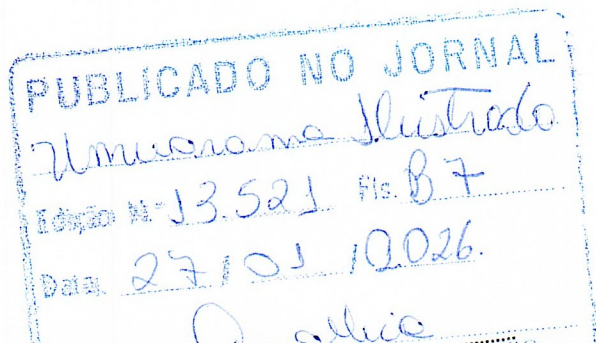 PUBLICADO NO JORNAL
Umuarama Ilustrado
Edição N.º 13.521 Fls. B7
Data. 27/01/2026.